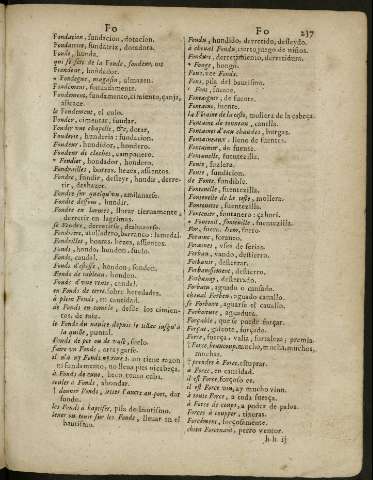 Fo
Fondation, fundacion, dotacion.
Fondatrice, fundatriz, dotadora.
Fonde, honda.
qui se sert de la Fonde, fondeur,
Frondeur, hondador.
* Fondegue, magasin, almazen.
Fondement, fontanamente.
Fondement, fundamento, cimiento, çanja,
assiete.
le Fondement, el culo.
Fonder, cimentar, fundar.
Fonder une chapelle, &c, dotar,
Fonderie, hunderia: fundacion.
Fondeur, hundidor, hondero.
Fondeur de cloches, campanero.
* Fondiar, hondador, hondero.
Fondrilles, borras, hezes, assientos.
Fondre, fundir, desleyr, hundir, derre-
tir, deshazer.
Fondre sur quelqu'un,
Fondre dessous, hundir.
Fondre en larmes, llorar tiernamente,
derretir en lagrimas.
se Fondre, derretirse, deshazerse.
Fondriere, atolladero, barranco: lamedal.
Fondrilles, borras, hezes, assientos.
Fonds, hondo, hondon, suelo.
Fonds, caudal.
Fonds d'assiete, hondon, fondon.
Fonds de tableau, hondon.
Fonds d'une rente, caudal.
en Fonds de terre, sobre heredades.
à plein Fonds, en cantidad.
de Fonds en comble, desde los cimien-
tos de
le Fonds du navire depuis le tillac jusqu'à
la quille, pantal.
Fonds de pot ou de vase, suelo.
faire un Fonds, arraygarse.
il n'a ny Fonds ny rive: no tiene razon
ni fundamento, no lleva pies ni cabeça.
à Fonds de cuve, hecho como cuba.
couler à Fonds, ahondar.
† donner Fonds, jetter l'ancre au port, dar
fondo.
les Fonds à baptiser, pila de bautismo.
tenir un enfant sur les Fonds, llevar en el
bautismo.
Fo 237
Fondu, hundido, derretido, desleydo.
à cheval Fondu, cierto juego de niños.
Fondure, derretimiento, derretidura.
* Fonge, hongo.
Fons, voc Fonds.
Fons, pila del bautismo.
* Font, fuente.
Fontaigne, de fuente.
Fontaine, fuente.
la Fontaine de la teste, mollera de la cabeça.
Fontaine de tonneau, canilla.
Fontaine d'eau chaudes, burgas.
Fontaineaux, lleno de fuentes.
Fontainier, de fuente.
Fontanelle, fuentezilla.
Fonte, fuslera.
Fonte, fundicion.
de Fonte, fundible.
Fontenelle, fuentezilla.
Fontenelle de la teste, mollera.
Fontenette, fuentezilla.
Fontenier, fontanero: çahori.
* Fontenil, fontenille, fuentezilla.
For, fuera, foro, fuero.
Forains, foranco.
Foraines, uses de ferias.
Forban, vando, destierro.
Forbanir, desterrar.
Forbanissement, destierro.
Forbanny, desterrado.
Forbeu, aguado o cansado.
cheval Forbeu, aguado cavallo.
se Forboire, aguarse el cavallo.
Forboiture, aguadura.
Forçable, que se puede forçar.
Forçat, galeote, forçado.
Force, fuerça, valia, fortaleza; premia.
† Force, beaucoup, mucho, mucha, muchos,
muchas.
prendre à Force, estuprar.
à Force, en cantidad.
il est Force, forçoso es.
il est Force vin, ay mucho vino.
à toute Force, a toda fuerça.
à Force de coups, a poder de palos.
Forces à couper, tixeras.
Forcément, forçosamente.
chien Forcenant, perro ventor.
h h ij